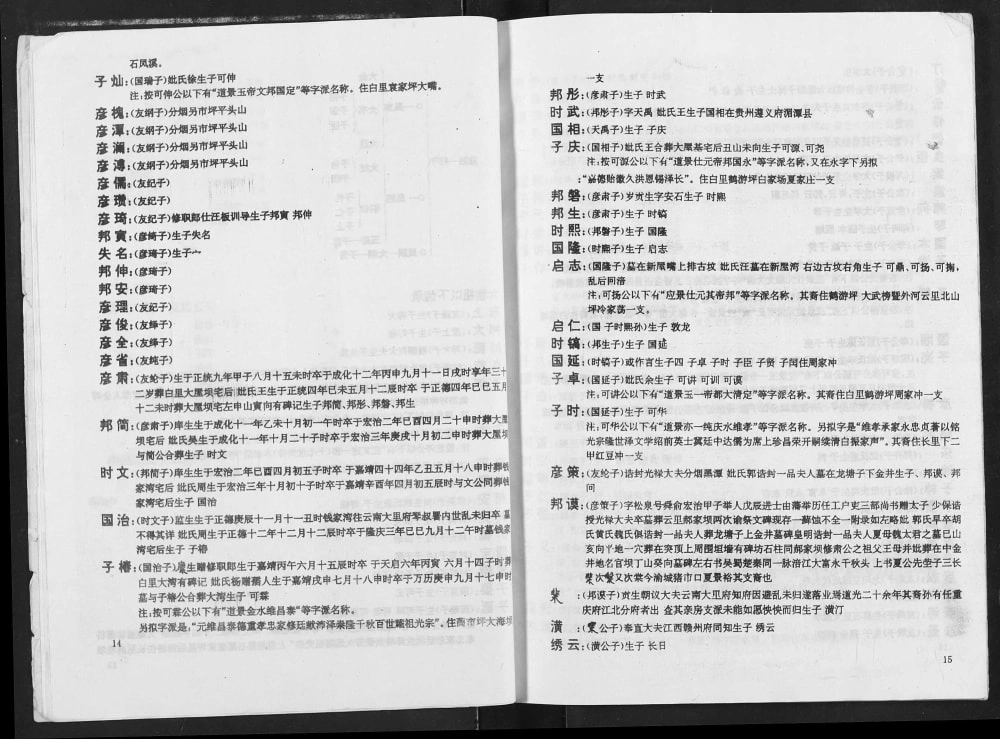 石凤溪。
子灿:(国瑞子)妣氏徐生子可伸
注:按可伸公以下有“道景五帝文邦国定”等字派名称。住白里袁家坪大嘴。
彦槐:(友纲子)分烟另市坪平头山
彦潭:(友纲子)分烟另市坪平头山
彦澜:(友纲子)分烟另市坪平头山
彦溥:(友纲子)分烟另市坪平头山
彦儒:(友纪子)
彦瓒:(友纪子)
彦琦:(友纪子)修职郎仕汪板训导生子邦寅 邦伸
邦寅:(彦绮子)生子失名
失名:(彦琦子)生子
邦伸:(彦琦子)
邦安:(彦琦子)
彦理:(友纪子)
彦俊:(友绎子)
彦全:(友绎子)
彦省:(友纯子)
彦肃:(友纶子)生于正统九年甲子八月十五未时卒于成化十二年丙申九月十一日戌时享年三十
二岁葬白里大屋坝宅后 妣氏王生于正统四年己未五月十二辰时卒 于正德四年己巳五月
十二未时葬大屋坝宅左申山寅向有碑记生子邦简、邦彤、邦磐、邦生
邦简:(彦肃子)庠生生于成化十一年乙未十月初一午时卒于宏治二年己酉四月二十申时葬大屋
坝宅后 妣氏吴生于成化十一年十月二十子时卒于宏治三年庚戌十月初二申时葬大屋坝
与简公合葬生子 时文
时文:(邦简子)庠生生于宏治二年已酉四月初五子时卒 于嘉靖四十四年乙丑五月十八申时葬钱
家湾宅后 妣氏周生于宏治三年十月初十子时卒于嘉靖辛酉年四月初五辰时与文公同葬钱
家湾宅后生子 国治
国治:(时文子)监生生于正德庚辰十一月十一丑时钱家湾往云南大里府琴叔署内世乱未归卒 墓
不得其详 妣氏周生于正德十二年十二月十二辰时卒于隆庆三年己巳九月十二午时墓钱家
湾宅后生子 子椿
子椿:(国治子)生赠修职郎生于嘉靖丙午六月十五辰时卒 于天启六年丙寅 六月十四子时葬
白里大湾有碑记 妣氏杨赠孺人生于嘉靖戌申七月十八申时卒于万历庚申九月十七申时
墓与子椿公合葬大湾生子 可霖
注,按可霖公以下有“道景金水维昌泰”等字派名称。
另拟字派是,“元维昌泰德重孝忠家修廷献沛泽兼隆千秋百世戴祖光宗”。住茴市坪大海坝
14
一支
邦彤:(彦肃子)生子 时武
时武:(邦彤子)字天禹 妣氏王生子国相在贵州遵义府湄潭县
国相:(天禹子)生子 子庆
子庆:(国相子)妣氏王合葬大屋基宅后丑山未向生子可源、可尧
注,按可源公以下有“道景仕元帝邦国永”等字派名称,又在永字下另拟
:“嘉德贻徽久洪恩锡泽长”。住白里鹤游坪白家场夏家庄一支
邦磐:(彦肃子)岁贡生字安石生子 时熙
邦生:(彦肃子)生子 时镐
时熙:(邦磐子)生子 国隆
国隆:(时熙子)生子 启志
启志:(国隆子)墓在新屋嘴上排古坟 妣氏汪墓在新屋湾 右边古坟右角生子 可鼎、可扬、可掬,
乱后回涪
注,可扬公以下有“应景仕元其帝邦”等字派名称。其裔住鹤游坪 大武秀暨外河云里北山
坪冷家荡一支。
启仁:(国 子时熙孙)生子 敦龙
时镐:(邦生子)生子 国延
国延:(时镐子)或作言生子四 子卓 子时 子臣 子贤 子闰住周家冲
子卓:(国延子)妣氏余生子 可讲 可训 可谟
注,可讲公以下有“道景玉一帝都大清定”等字派名称。其裔住白里鹤游坪周家冲一支
子时:(国延子)生子 可华
注,可华公以下有“道景亦一纯庆水维孝”等字派名称。另拟字是“维孝承家永忠贞著以铭
光宗隆世泽文学绍前英士冀廷中达儒为席上珍昌荣开嗣续清白报家声”。其裔住长里下二
甲红豆冲一支
彦策:(友纶子)诰封光禄大夫分烟黑潭 妣氏郭诰封一品夫人墓在龙塘子下金井生子、邦谟、邦
问
邦谟:(彦策子)字松泉号舜俞宏治甲子举人戊辰进士由藩举历任工户吏三部尚书赠太子 少保诰
授光禄大夫卒墓葬云里郝家坝两次谕祭文碑现存一藓蚀不全一附录如左略妣 郭氏早卒胡
氏黄氏魏氏俱诰封一品夫人葬龙塘子上金井墓碑皇明诰封一品夫人夏母魏太君之墓巳山
亥向平地一穴葬在突顶上周围垣墙有碑坊石柱同郝家坝修肃公之祖父王母并妣葬在中金
井地名官坝丁山癸向墓碑左右书吴蜀楚秦同一脉涪江大富永千秋头 上书夏公先茔子三长
次又次棠今渝城猪市口夏景裕其支裔也
:(邦谟子)贡生朝议大夫云南大里府知府因避乱未归遂落业焉道光二十余年其裔孙有任重
庆府江北分府者出 查其亲房支派未能如愿怏怏而归生子 潢汀
潢:(公子)奉直大夫江西赣州府同知生子 绣云
绣云:(潢公子)生子 长日
15